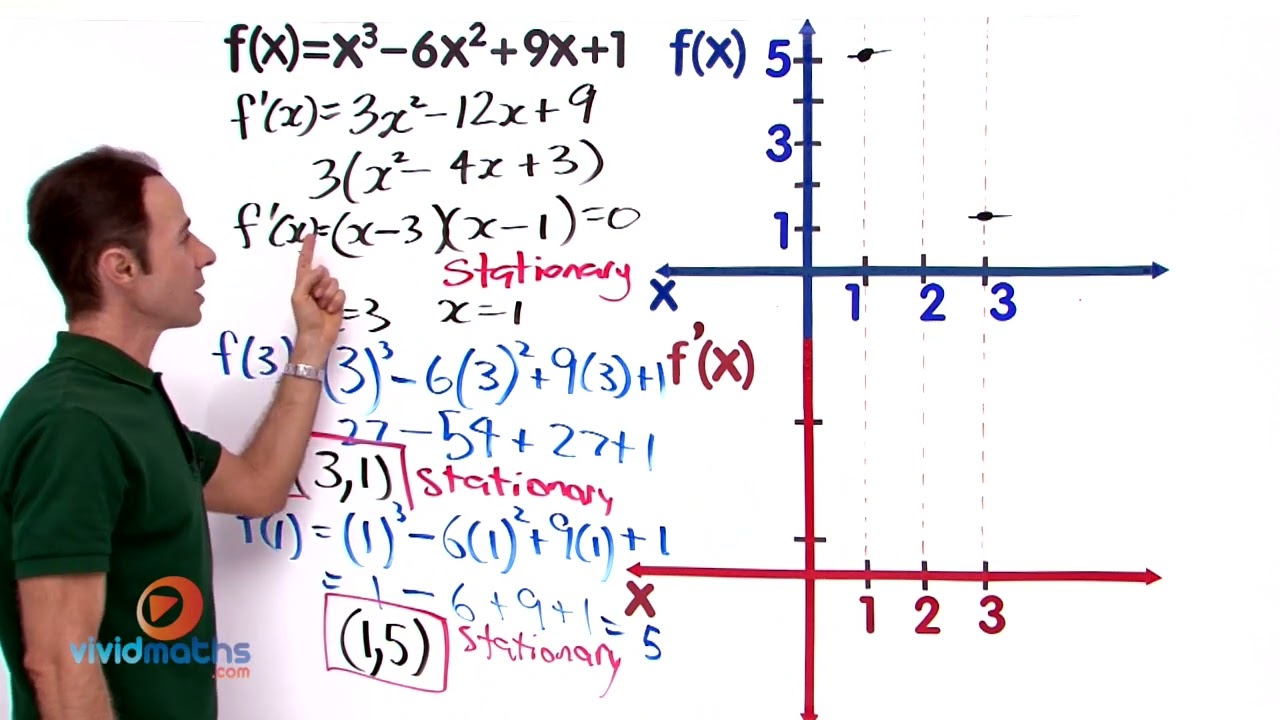 f(x)=x³−6x²+9x+1
f'(x)=3x²−12x+9
3(x²−4x+3)
f'(x)=(x−3)(x−1)=0
stationary
=3 x=1
f(3) (3)³−6(3)²+9(3)+1
27−54+27+1
3,1) stationary
f(1)=(1)³−6(1)²+9(1)+1
=1−6+9+1=5
(1,5) stationary
vividmaths
.com
f(x)
5
3
1
x 1 2 3
f'(x)
x 1 2 3